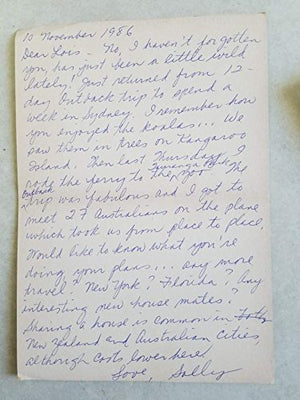 10 November 1986
Dear Lois - No, I haven't forgotten
you, has just been a little wild
lately! Just returned from 12-
day Outback trip to spend a
week in Sydney. I remember how
you enjoyed the koalas... We
saw them in trees on Kangaroo
Island. Then last Thursday I
rode the ferry to the Taronga Park Zoo. The
Outback
trip was fabulous and I got to
meet 27 Australians on the plane
which took us from place to place.
Would like to know what you're
doing, your plans.... any more
travel? New York? Florida? Any
interesting new house mates?
Sharing a house is common in both
New Zealand and Australian Cities,
although costs lower here!
Love, Sally